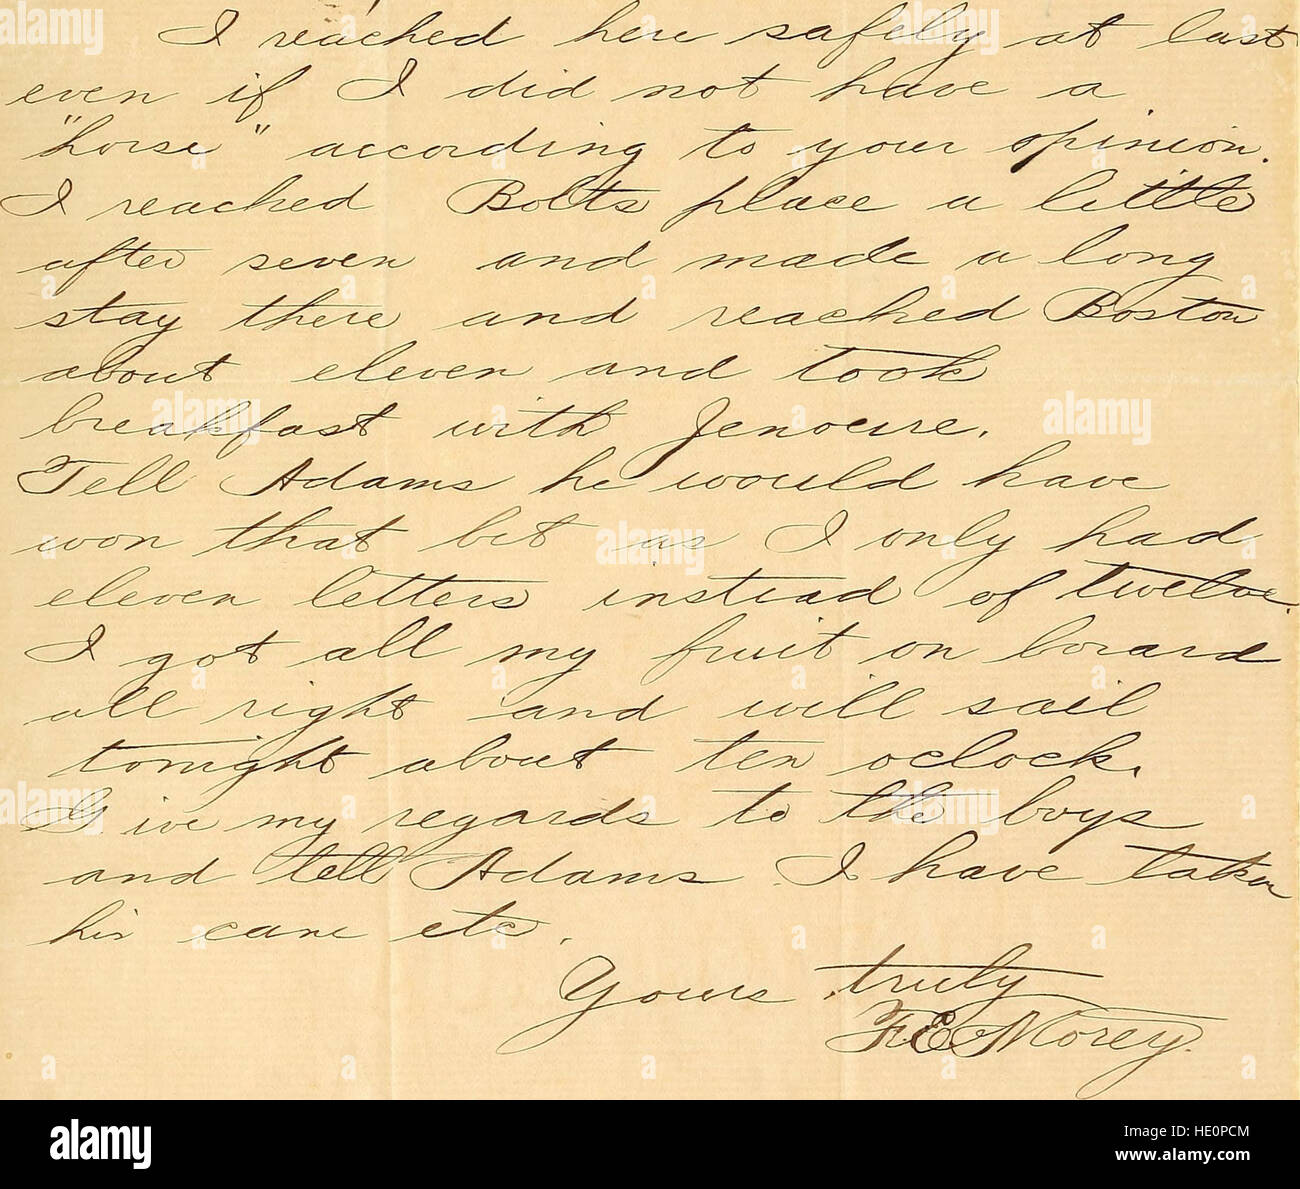 I reached here safely at last
even if I did not have a
"horse" according to your opinion.
I reached Bolts place a little
after seven and made a long
stay there and reached Boston
about eleven and took
breakfast with Jenocure.
Tell Adams he would have
won that bet as I only had
eleven letters instead of twelve.
I got all my fruit on board
all right and will sail
tonight about ten oclock.
Give my regards to the boys
and tell Adams I have taken
his cane etc.
Yours truly
F. E. Morey.
alamy stock photo
HE0PCM
www.alamy.com